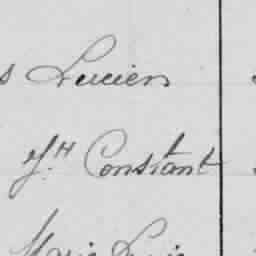 s Lucien
Jh Constant
Marie Louis